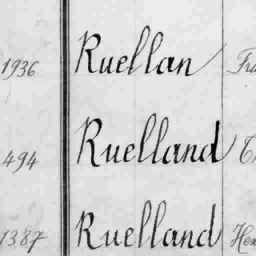 1936 Ruellan
494 Ruelland
1387 Ruelland